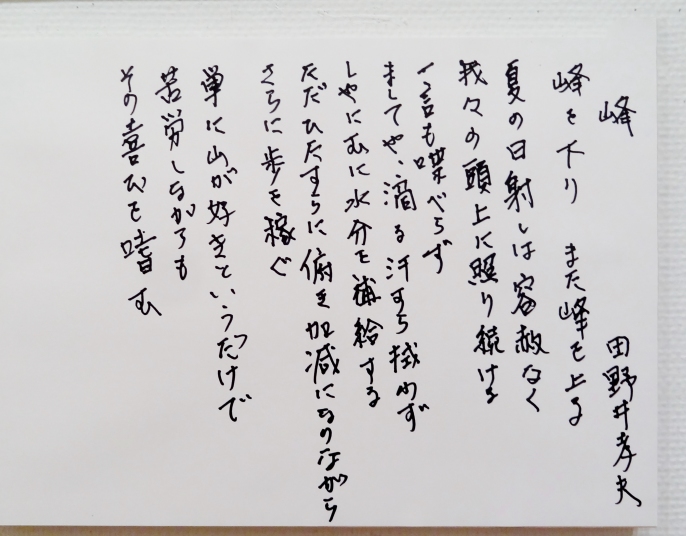 峰
田野井孝夫
峰を下り　また峰を上る
夏の日射しは容赦なく
我々の頭上に照り続ける
一言も喋べらず
ましてや、滴る汗すら拭わず
しゃにむに水分を補給する
ただひたすらに俯き加減になりながら
さらに歩を稼ぐ
単に山が好きというだけで
苦労しながらも
その喜びを嗜む